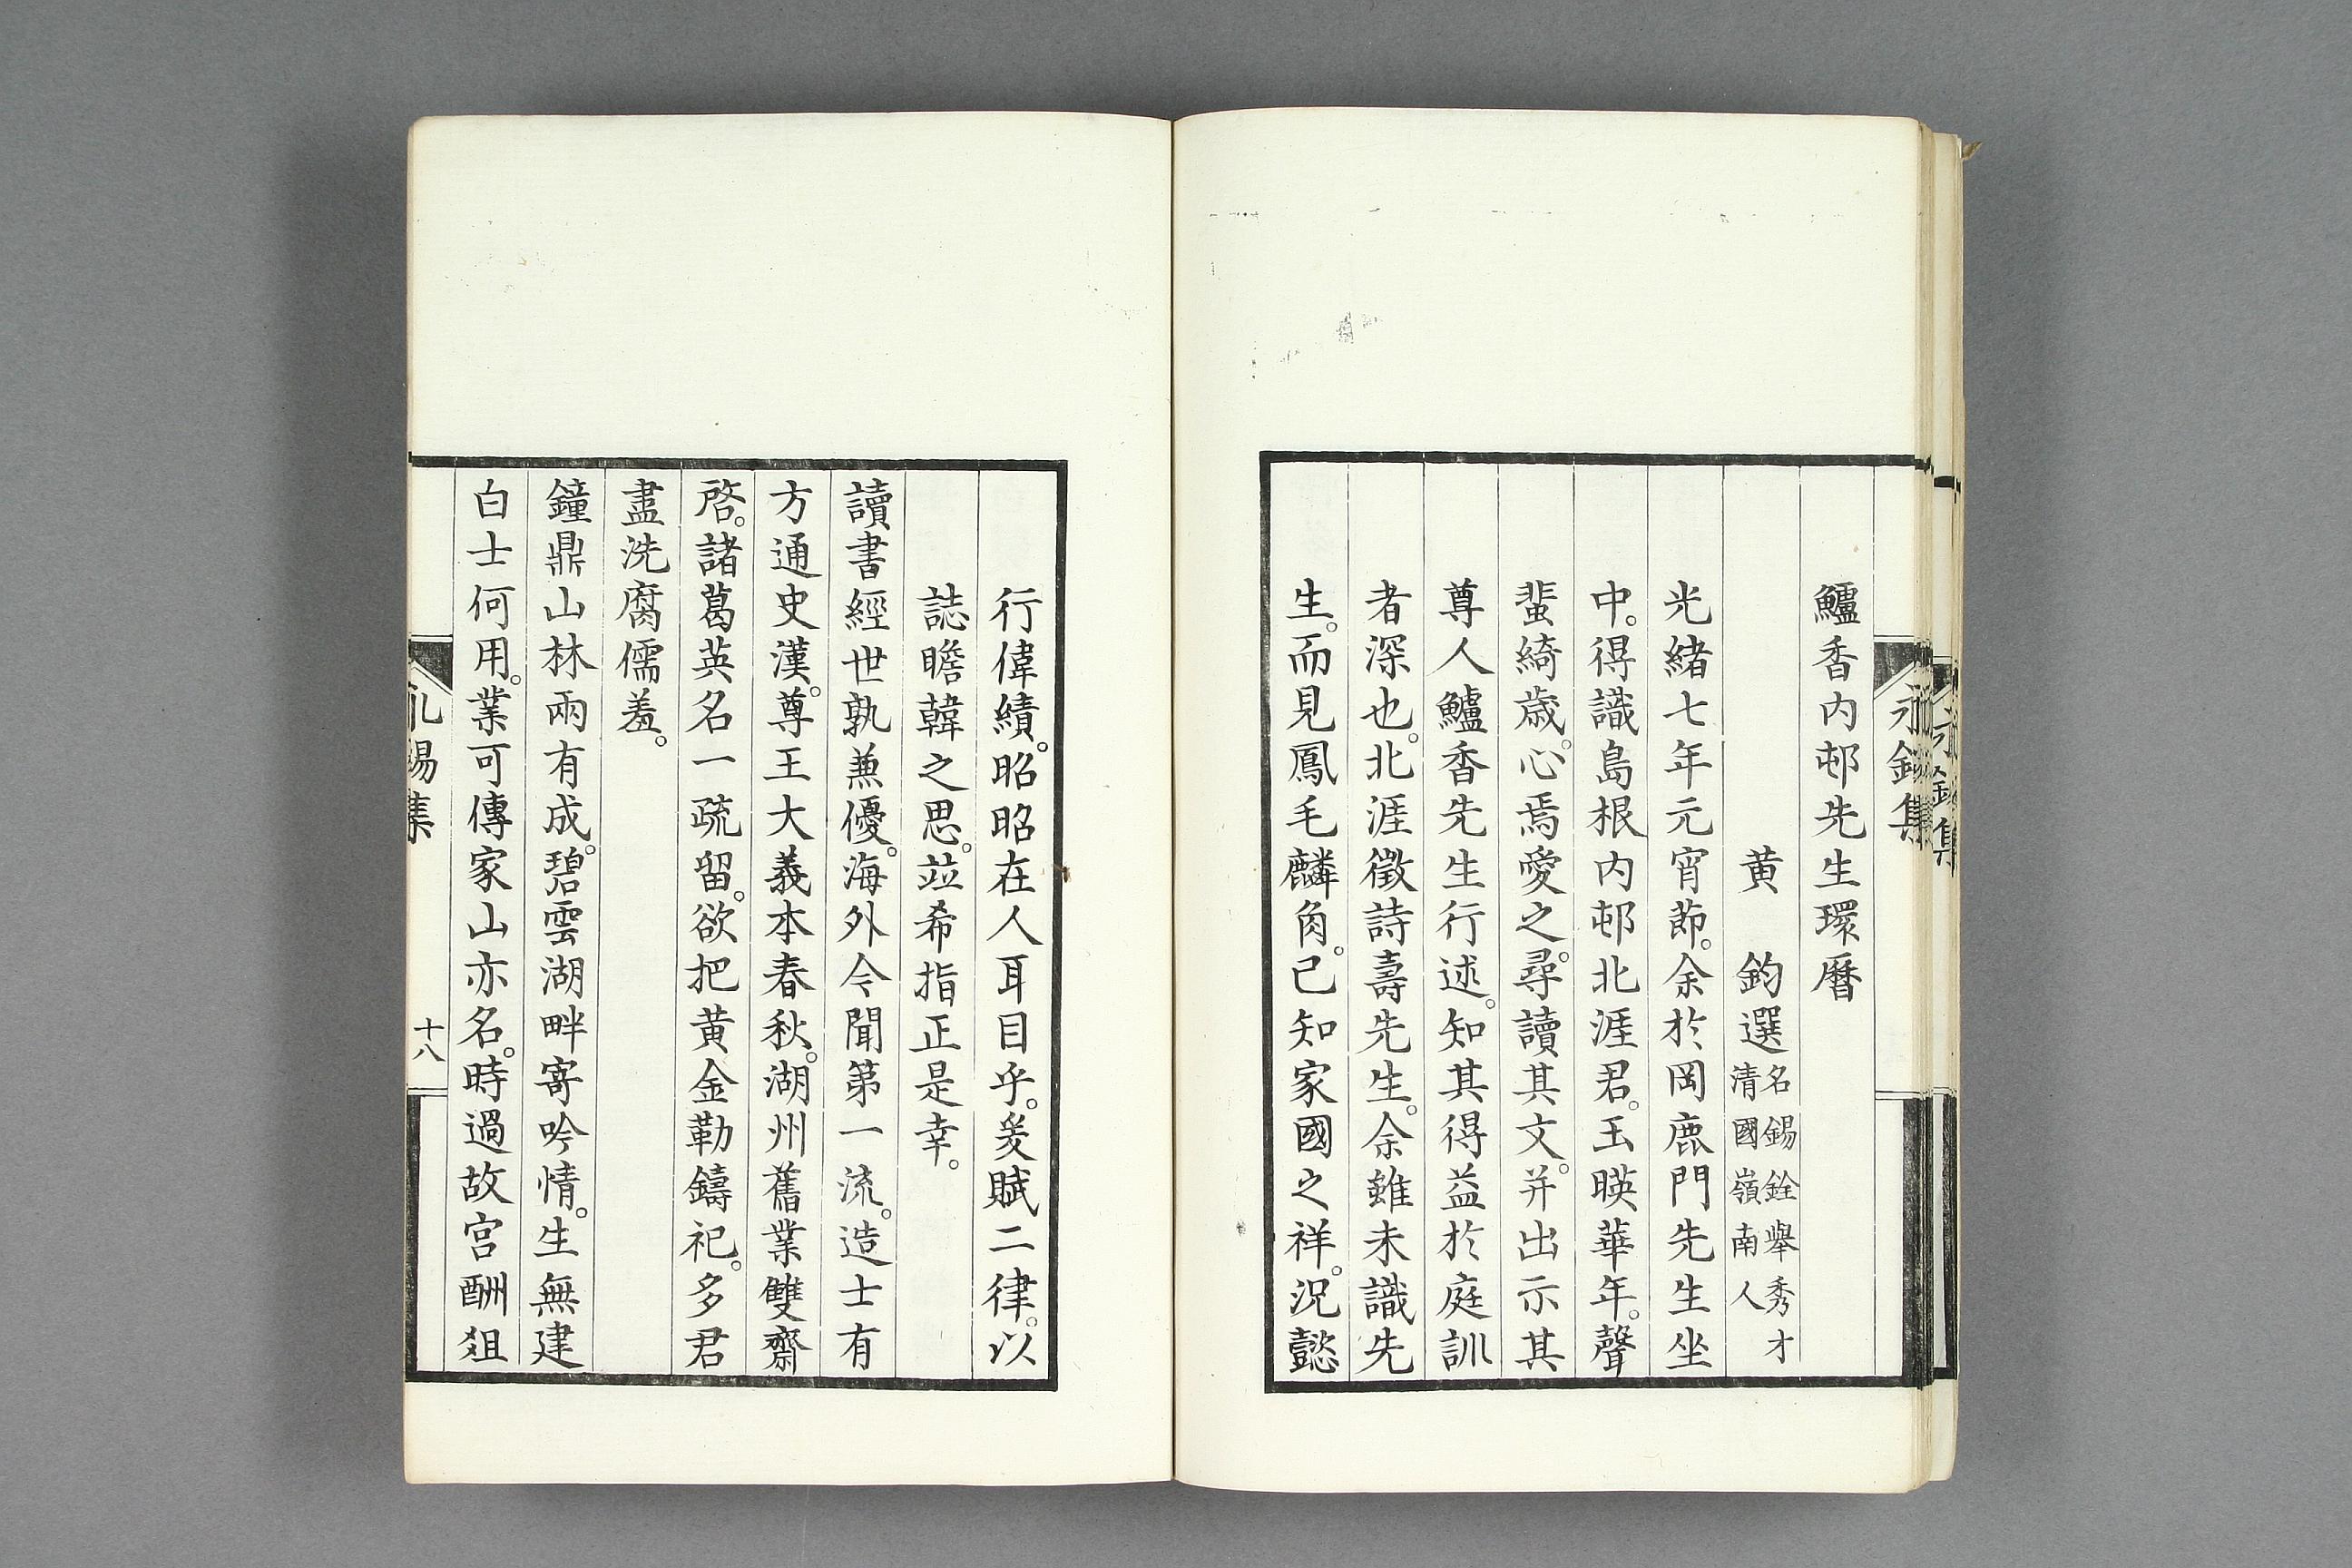 鱸香内邨先生環曆
黄　鈞選 名錫銓舉秀才 清國嶺南人
光緒七年元宵莭。余於岡鹿門先生坐
中。得識島根内邨北涯君。玉暎華年。聲
蜚綺歳。心焉愛之。尋讀其文。并出示其
尊人鱸香先生行述。知其得益於庭訓
者深也。北涯徵詩壽先生。余雖未識先
生。而見鳳毛麟角。已知家國之祥。況懿
行偉績。昭昭在人耳目乎。爰賦二律。以
誌瞻韓之思。竝希指正是幸。
讀書經世孰兼優。海外今聞第一流。造士有
方通史漢。尊王大義本春秋。湖州舊業雙齋
啓。諸葛英名一疏留。欲把黄金勒鑄祀。多君
盡洗腐儒羞。
鐘鼎山林兩有成。碧雲湖畔寄吟情。生無建
白士何用。業可傳家山亦名。時過故宫酬俎
集
十八